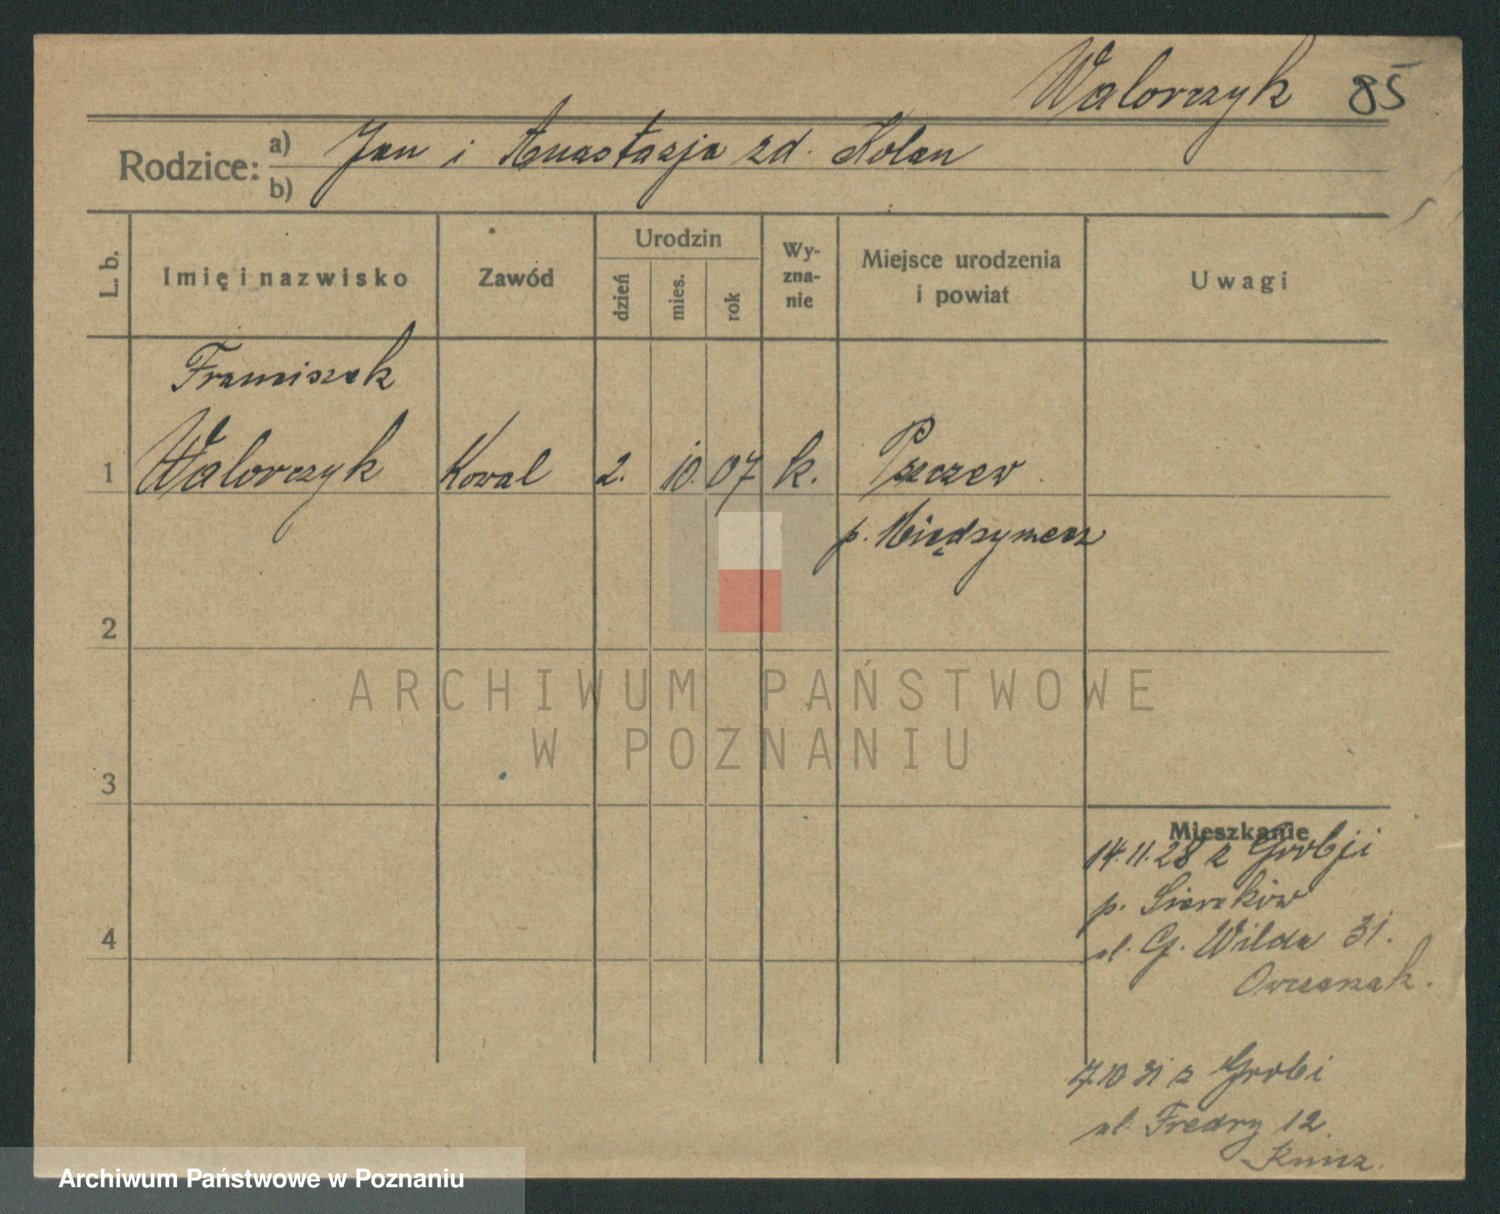 Walorczyk 85
Rodzice: a) Jan i Anastazja zd. Kolan
b)
L. b.
Imię i nazwisko
Zawód
Urodzin
dzień
mies.
rok
Wy-
zna-
nie
Miejsce urodzenia
i powiat
Uwagi
Franciszek
1 Walorczyk Kowal 2. 10. 07 k. Pszczew
p. Międzymecz
2
3
4
Mieszkanie
14.11.28 z Grobji
p. Sieraków
ul. G. Wilda 31.
Owczarzak.
7 10 31 z Grobi
ul. Fredry 12
ARCHIWUM PAŃSTWOWE
W POZNANIU
Archiwum Państwowe w Poznaniu